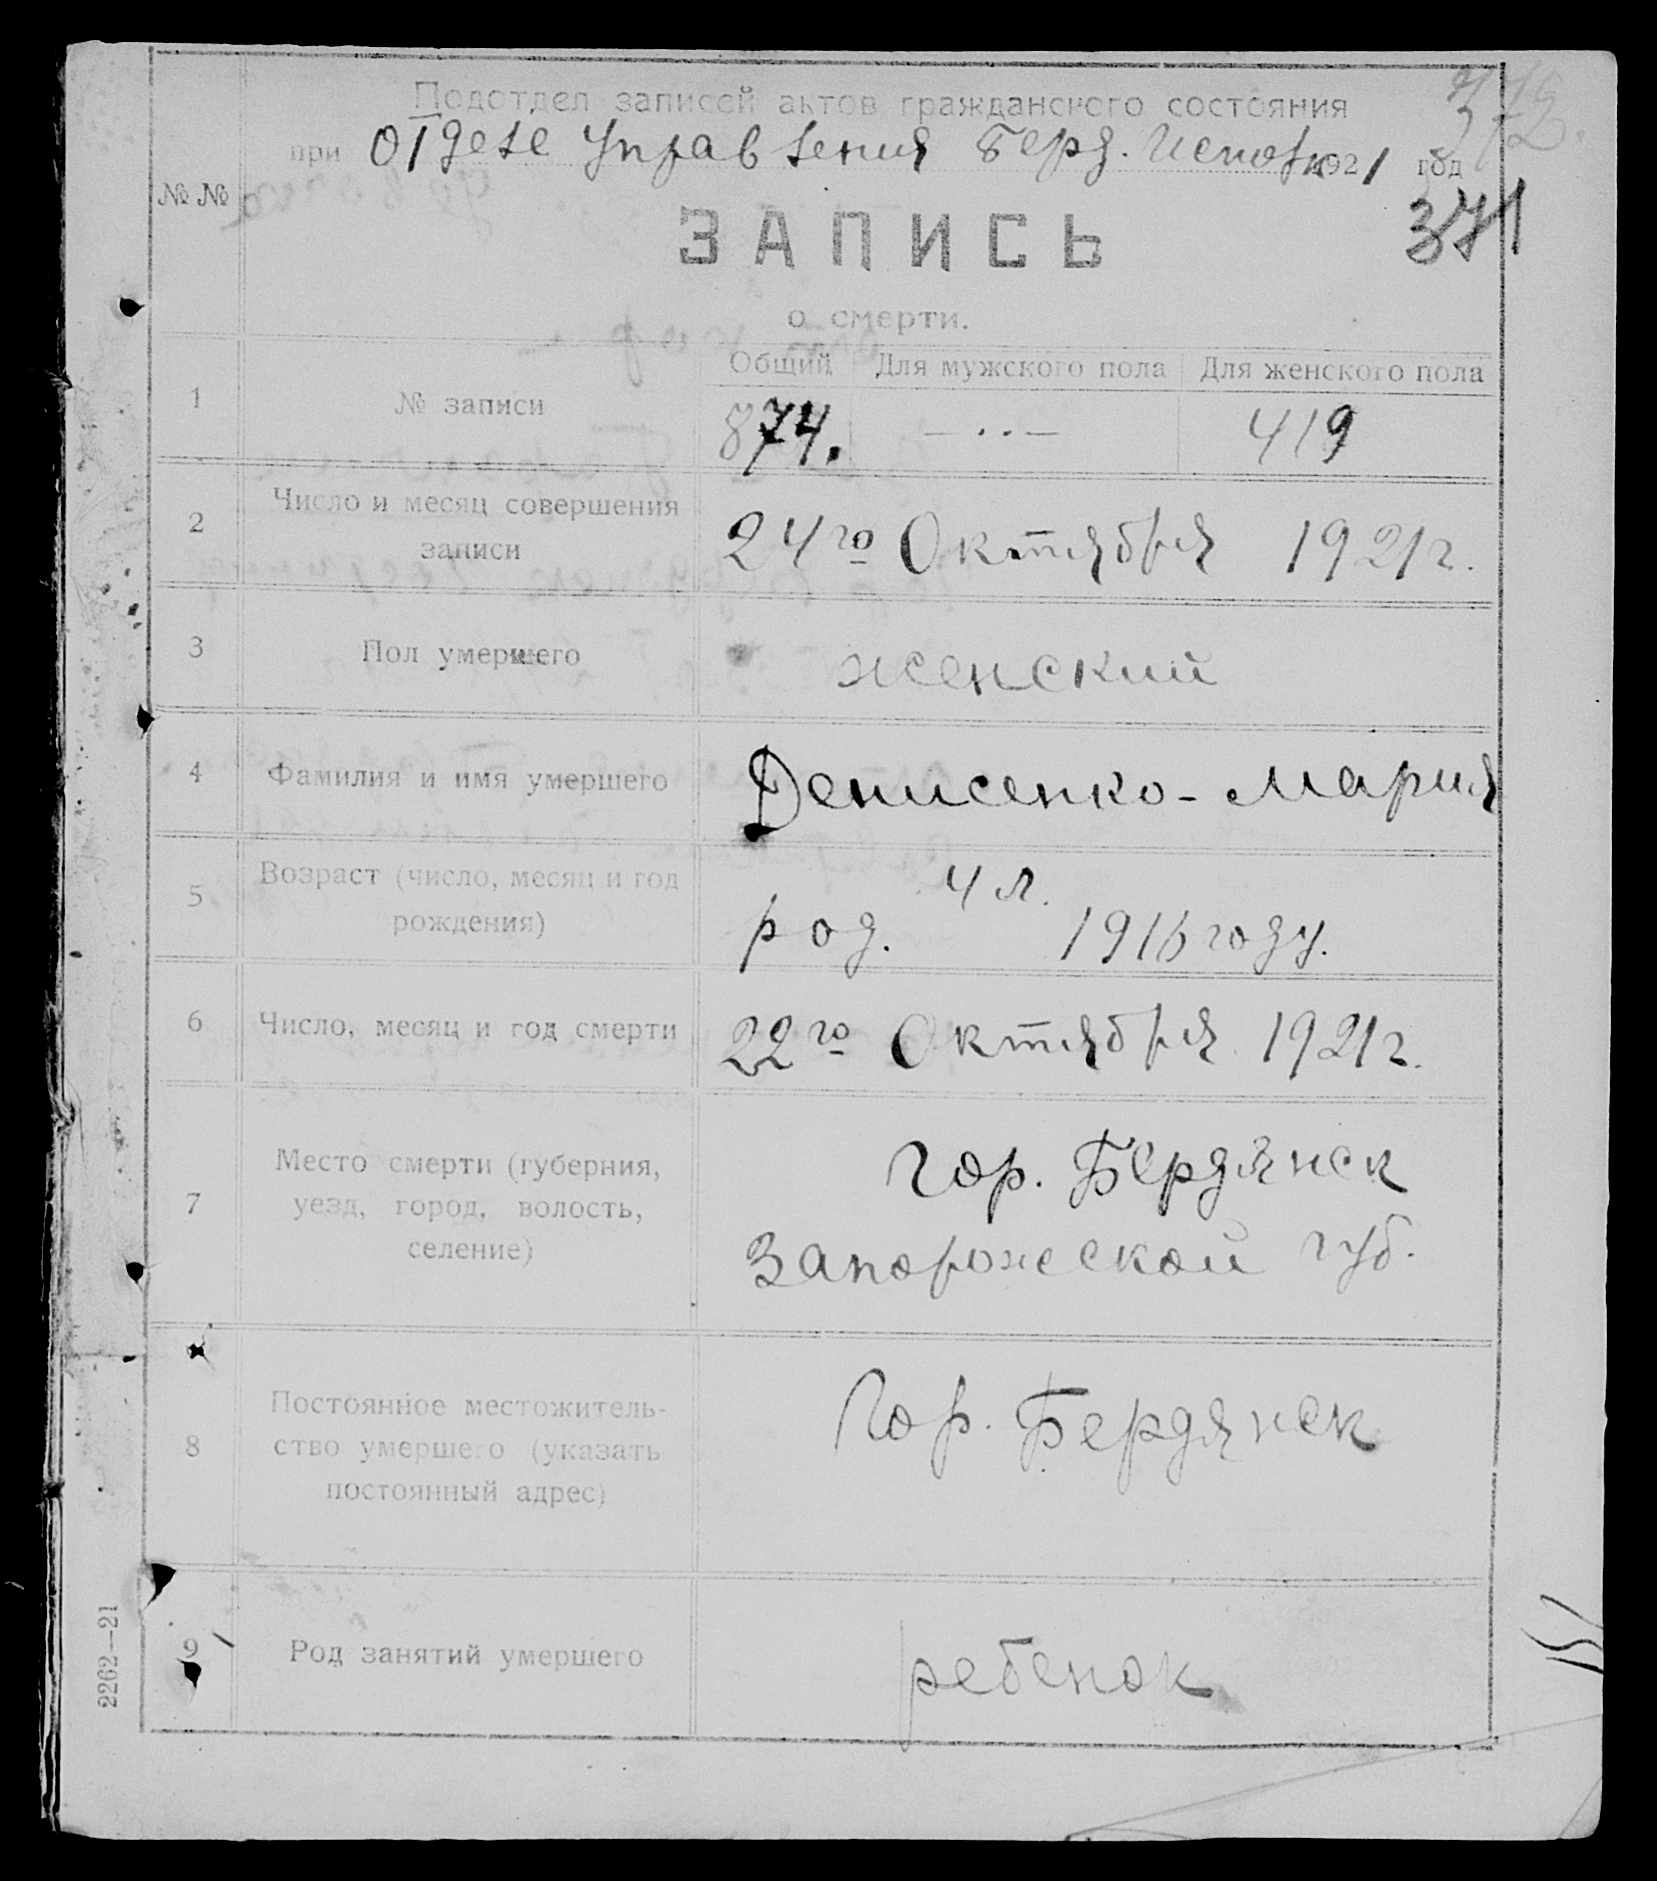 Подотдел записей актов гражданского состояния
при Отделе Управления Берд. Исполк 1921 год
371
№ №
ЗАПИСЬ
о смерти.
Общий Для мужского пола Для женского пола
1 № записи 874. — · · — 419
2 Число и месяц совершения
записи
24го Октября 1921 г.
3 Пол умершего женский
4 Фамилия и имя умершего Денисенко - Мария
5 Возраст (число, месяц и год
рождения)
4 л.
род. 1916 году.
6 Число, месяц и год смерти 22го Октября 1921 г.
7 Место смерти (губерния,
уезд, город, волость,
селение)
гор. Бердянск
Запорожской губ.
8 Постоянное местожитель-
ство умершего (указать
постоянный адрес)
Гор. Бердянск
9 Род занятий умершего ребенок
2262—21